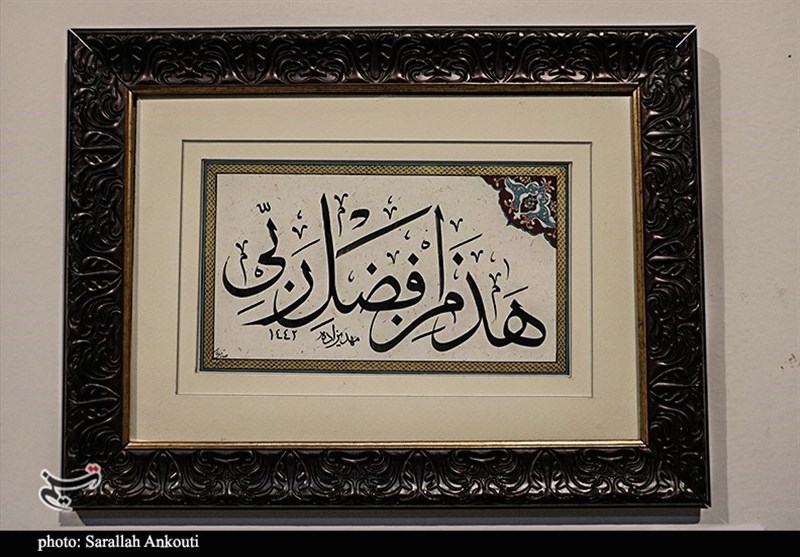 هذا من فضل ربی
مهدیزاده ۱۴۴۲
تسنیم
photo: Sarallah Ankouti